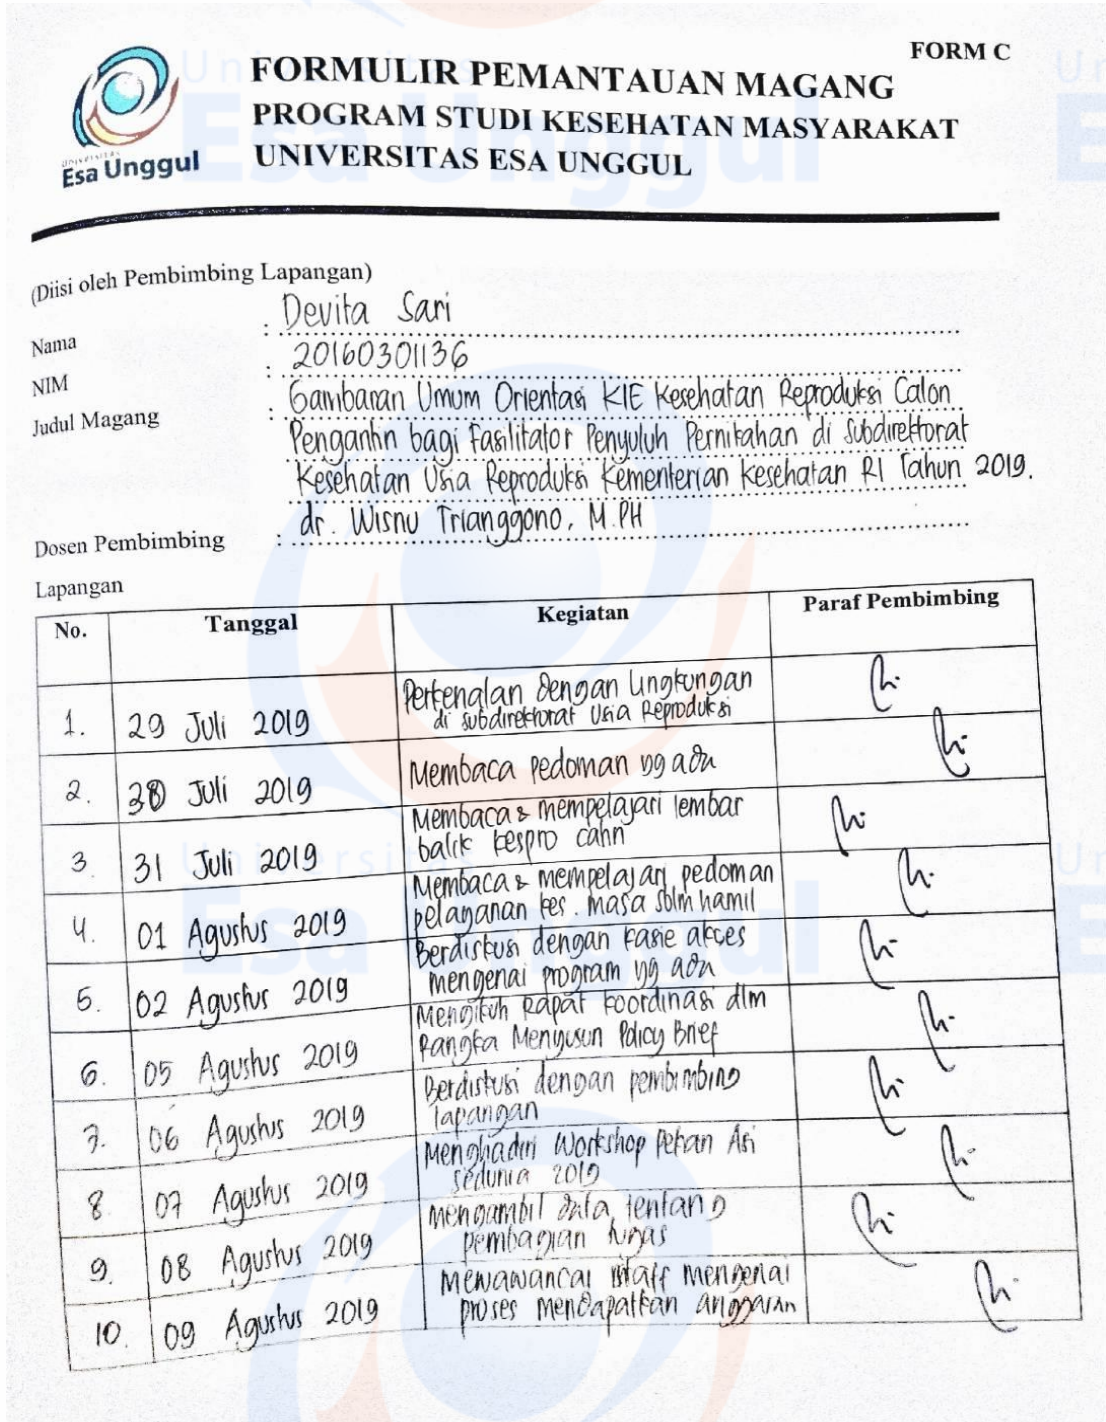 FORM C
FORMULIR PEMANTAUAN MAGANG
PROGRAM STUDI KESEHATAN MASYARAKAT
UNIVERSITAS ESA UNGGUL
UNIVERSITAS
Esa Unggul
(Diisi oleh Pembimbing Lapangan)
Nama : Devita Sari
NIM : 20160301136
Judul Magang : Gambaran Umum Orientasi KIE Kesehatan Reproduksi Calon
Pengantin bagi Fasilitator Penyuluh Pernikahan di Subdirektorat
Kesehatan Usia Reproduksi Kementerian Kesehatan RI Tahun 2019.
Dosen Pembimbing : dr. Wisnu Trianggono, M.PH
Lapangan
No. Tanggal Kegiatan Paraf Pembimbing
1. 29 Juli 2019 Perkenalan dengan lingkungan
di subdirektorat Usia Reproduksi
2. 30 Juli 2019 Membaca pedoman yg ada
3. 31 Juli 2019 Membaca & mempelajari lembar
balik kespro catin
4. 01 Agustus 2019 Membaca & mempelajari pedoman
pelayanan kes. masa sblm hamil
5. 02 Agustus 2019 Berdiskusi dengan kasie akses
mengenai program yg ada
6. 05 Agustus 2019 Mengikuti Rapat koordinasi dlm
Rangka Menyusun Policy Brief
7. 06 Agustus 2019 Berdiskusi dengan pembimbing
lapangan
8. 07 Agustus 2019 Menghadiri Workshop Pekan Asi
sedunia 2019
9. 08 Agustus 2019 mengambil data tentang
pembagian tugas
10. 09 Agustus 2019 Mewawancai staff mengenai
proses mendapatkan anggaran
Universitas
Esa Unggul